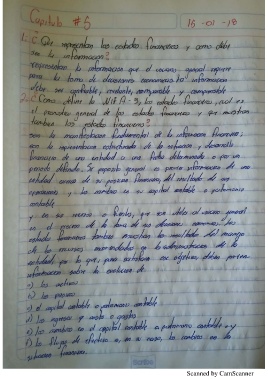 Capitulo #5
16-01-18
1.¿Que representan los estados financieros y como debe
ser la informacion?
representan la informacion que el usuario general requiere
para la toma de decisiones economicas la informacion
debe ser confiable, relevante, comprensible y comparable
2.¿Como define la NIF A-3, los estados financieros, cual es
el proposito general de los estados financieros y que muestran
tambien los estados financieros?
son la manifestacion fundamental de la informacion financiera,
son la representacion estructurada de la situacion y desarrollo
financiero de una entidad a una fecha determinada o por un
periodo definido. Su proposito general es proveer informacion de una
entidad acerca de su posicion financiera, del resultado de sus
operaciones y los cambios en su capital contable o patrimonio
contable
y en sus recursos o fuentes, que son utiles al usuario general
en el proceso de la toma de sus decisiones economicas. Los
estados financieros tambien muestran los resultados del manejo
de los recursos encomendados a la administracion de la
entidad, por lo que, para satisfacer ese objetivo, deben proveer
informacion sobre la evolucion de
a) los activos
b) los pasivos
c) el capital contable o patrimonio contable
d) los ingresos y costos o gastos
e) los cambios en el capital contable o patrimonio contable y
f) los flujos de efectivo o en su caso, los cambios en la
situacion financiera.
Scanned by CamScanner